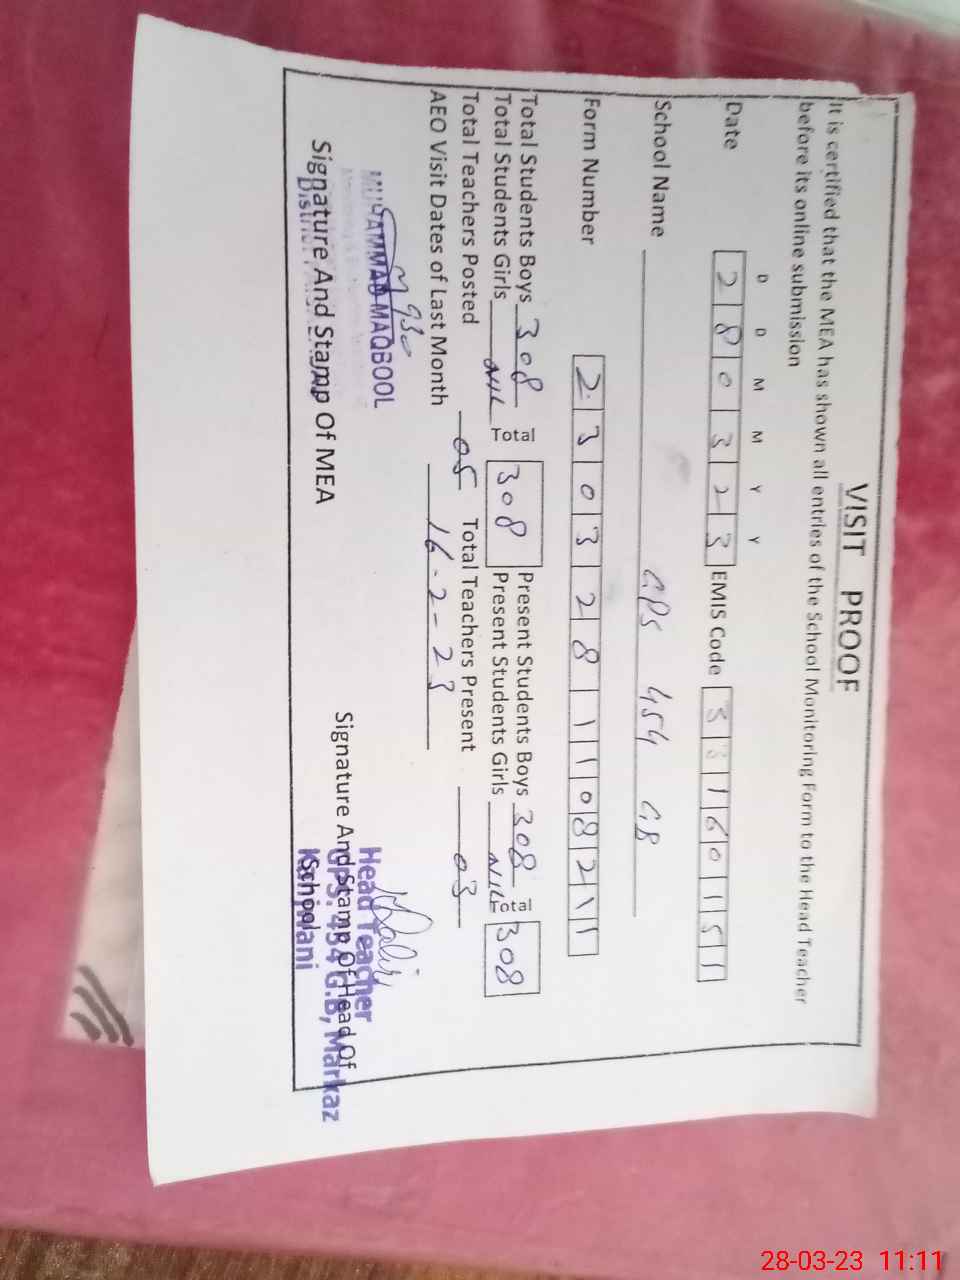 VISIT PROOF
It is certified that the MEA has shown all entries of the School Monitoring Form to the Head Teacher
before its online submission
D D M M Y Y
Date 2 8 0 3 2 3 EMIS Code 3 3 1 6 0 1 5 1
School Name GPS 454 GB
Form Number 2 3 0 3 2 8 1 1 0 8 2 1 1
Total Students Boys 308 Total 308 Present Students Boys 308 Total 308
Total Students Girls NIL Present Students Girls NIL
Total Teachers Posted 05 Total Teachers Present 03
AEO Visit Dates of Last Month 16-2-23
930
MUHAMMAD MAQBOOL
Signature And Stamp Of MEA
Head Teacher
GPS. 454 G.B, Markaz
Signature And Stamp Of Head Of
School
28-03-23 11:11